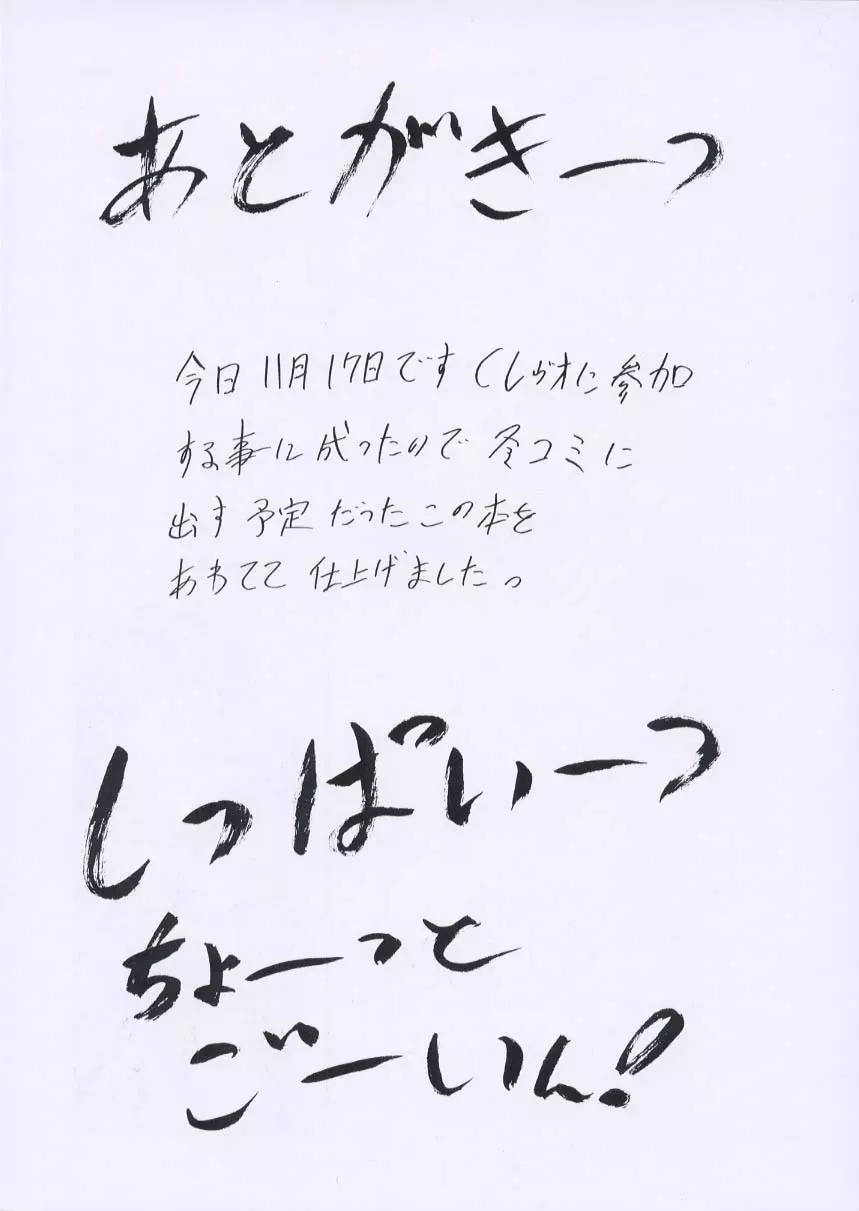 あとがきーっ
今日11月17日です くしケットに参加
する事に成ったので 冬コミに
出す予定だったこの本を
あわてて 仕上げましたっ
しっぱいーっ
ちょーっと
ごーいん!